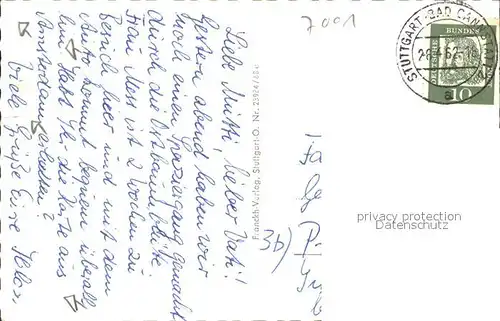 7001
STUTTGART-BAD CANN
BUNDES
10
Liebe Mutti, lieber Vati!
Gestern abend haben wir
noch einen Spaziergang gemacht
durch die Ostbaumblüte
Frau Mess ist 2 Wochen zu
Besuch hier und mit dem
Auto kommt bequem überall
hin. Habt Ihr die Karte aus
Amsterdam erhalten?
Viele Grüße Eure
Franckh-Verlag, Stuttgart-O. Nr.
3b)
privacy protection
Datenschutz